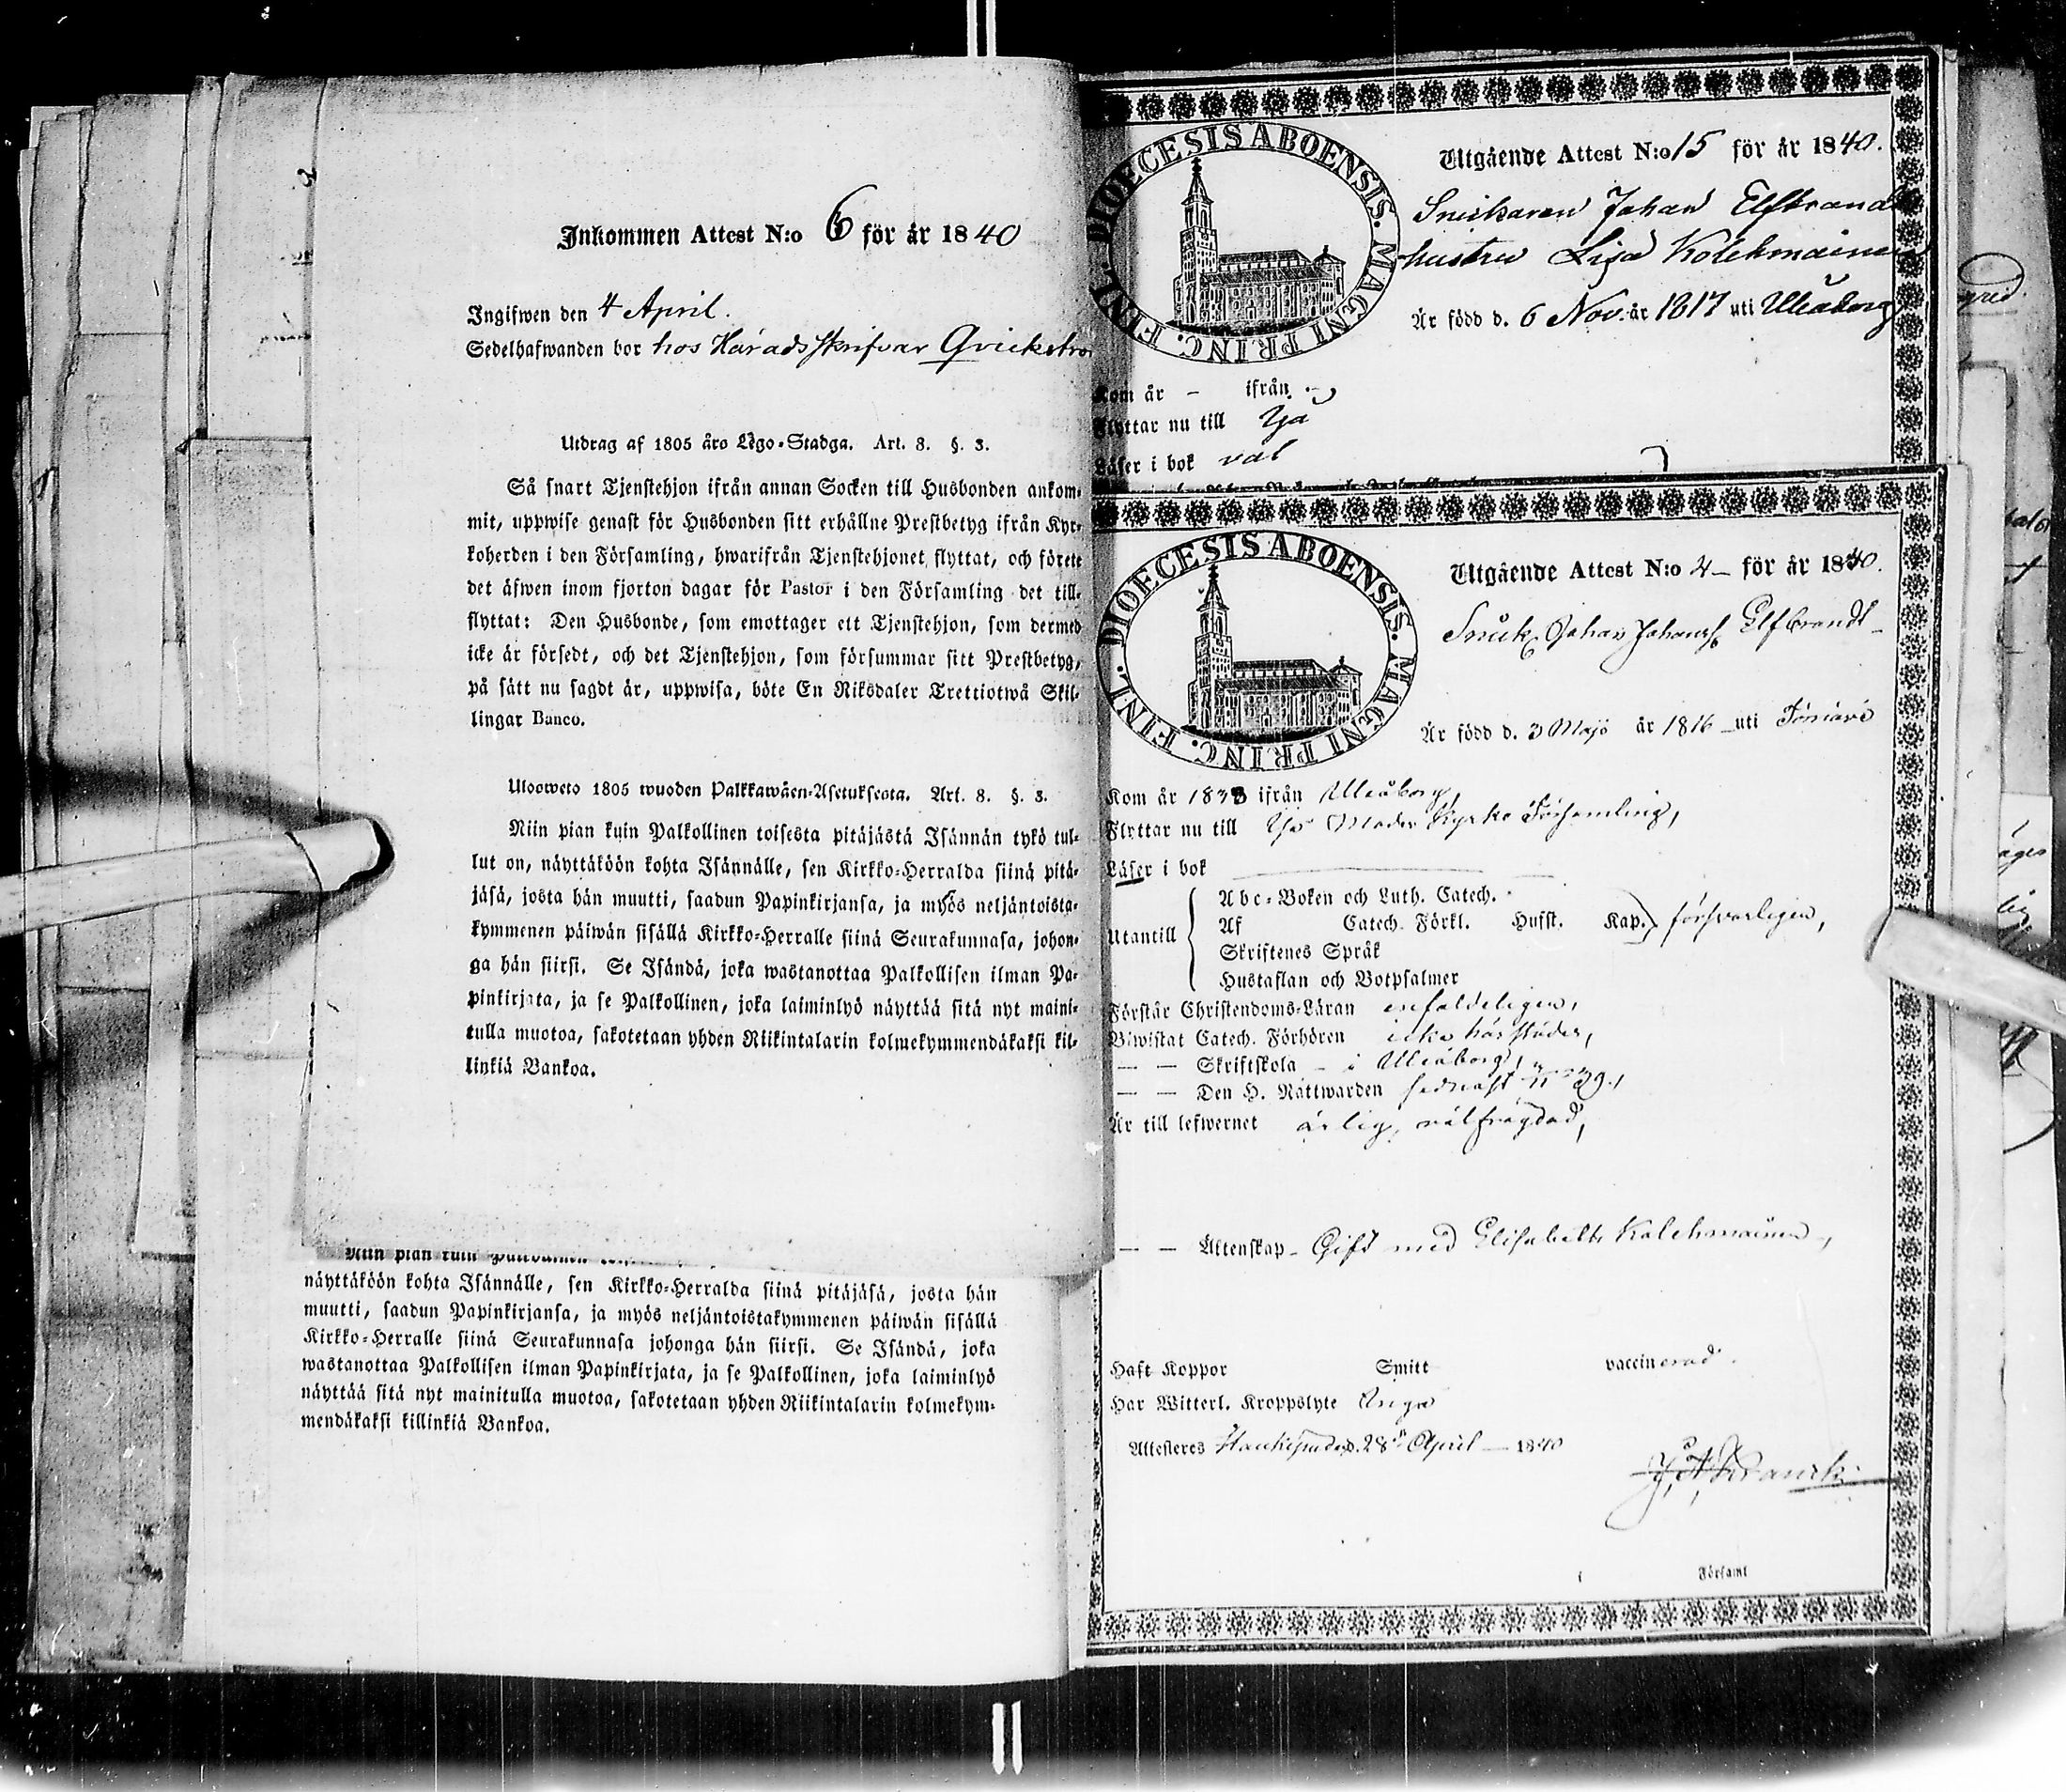 Inkommen Attest N:o 6 för år 1840
Ingifwen den 4 April.
Sedelhafwanden bor hos Häradsskrifvar Qvickstro
Utdrag af 1805 års Lego-Stadga. Art. 8. §. 3.
Så snart Tjenstehjon ifrån annan Socken till Husbonden ankom-
mit, uppwise genast för Husbonden sitt erhållne Prestbetyg ifrån Kyr-
koherden i den Församling, hwarifrån Tjenstehjonet flyttat, och förete
det äfwen inom fjorton dagar för Pastor i den Församling det till-
flyttat: Den Husbonde, som emottager ett Tjenstehjon, som dermed
icke är försedt, och det Tjenstehjon, som försummar sitt Prestbetyg,
på sätt nu sagdt är, uppwisa, böte En Riksdaler Trettiotwå Skil-
lingar Banco.
Uloosweto 1805 wuoden Palkkawäen-Asetuksesta. Art. 8. §. 3.
Niin pian kuin Palkollinen toisesta pitäjästä Isännän tykö tul-
lut on, näyttäköön kohta Isännälle, sen Kirkko-Herralda siinä pitä-
jäsä, josta hän muutti, saadun Papinkirjansa, ja myös neljäntoista-
kymmenen päiwän sisällä Kirkko-Herralle siinä Seurakunnasa, johon-
ga hän siirsi. Se Isändä, joka wastanottaa Palkollisen ilman Pa-
pinkirjata, ja se Palkollinen, joka laiminlyö näyttää sitä nyt maini-
tulla muotoa, sakotetaan yhden Riikintalarin kolmekymmendäkaksi kil-
linkiä Bankoa.
Niin pian kuin
näyttäköön kohta Isännälle, sen Kirkko-Herralda siinä pitäjäsä, josta hän
muutti, saadun Papinkirjansa, ja myös neljäntoistakymmenen päiwän sisällä
Kirkko-Herralle siinä Seurakunnasa johonga hän siirsi. Se Isändä, joka
wastanottaa Palkollisen ilman Papinkirjata, ja se Palkollinen, joka laiminlyö
näyttää sitä nyt mainitulla muotoa, sakotetaan yhden Riikintalarin kolmekym-
mendäkaksi killinkiä Bankoa.
DIOECESIS ABOENSIS. MAGNI PRINC. FINL.
Utgående Attest N:o 15 för år 1840.
Snickaren Johan Elfbrand
hustru Lisa Kolehmainen
Är född d. 6 Nov. år 1817 uti Uleåborg
Kom år – ifrån
Flyttar nu till Ijå
Läser i bok väl
DIOECESIS ABOENSIS. MAGNI PRINC. FINL.
Utgående Attest N:o 2– för år 1840.
Snick. Johan Johanss. Elfbrandt
Är född d. 3 Maji år 1816 – uti
Kom år 1838 ifrån Uleåborg,
Flyttar nu till Ijo Moder Kyrko Församling,
Läser i bok
Utantill
Abc-Boken och Luth. Catech.
Af Catech. Förkl. Husst. Kap. försvarligen,
Skriftenes Språk
Hustaflan och Botpsalmer
Förstår Christendoms-Läran enfaldeligen,
Biwistat Catech. Förhören icke härstädes,
— — Skriftskola – i Uleåborg,
— — Den H. Nattwarden sednast 39.,
Är till lefwernet ärlig, välfrägdad,
— — Äktenskap – Gift med Elisabeth Kolehmainen,
Haft Koppor Smitt vaccinerad.
Har Witterl. Kroppslyte Inga
Attesteres d. 28 April – 1840
i Församl